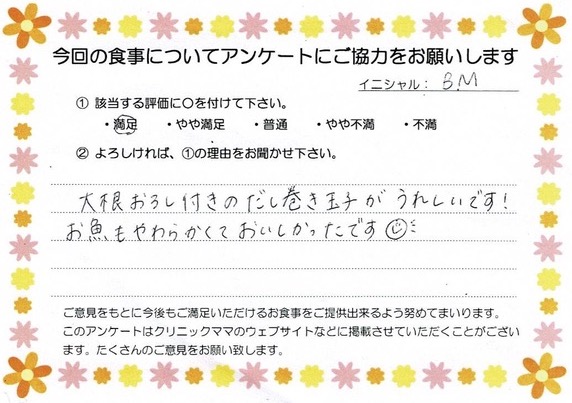 今回の食事についてアンケートにご協力をお願いします
イニシャル： B.M
① 該当する評価に〇を付けて下さい。
・満足 ・やや満足 ・普通 ・やや不満 ・不満
② よろしければ、①の理由をお聞かせ下さい。
大根おろし付きのだし巻き玉子がうれしいです!
お魚もやわらかくておいしかったです
ご意見をもとに今後もご満足いただけるお食事をご提供出来るよう努めてまいります。
このアンケートはクリニックママのウェブサイトなどに掲載させていただくことがござい
ます。たくさんのご意見をお願い致します。